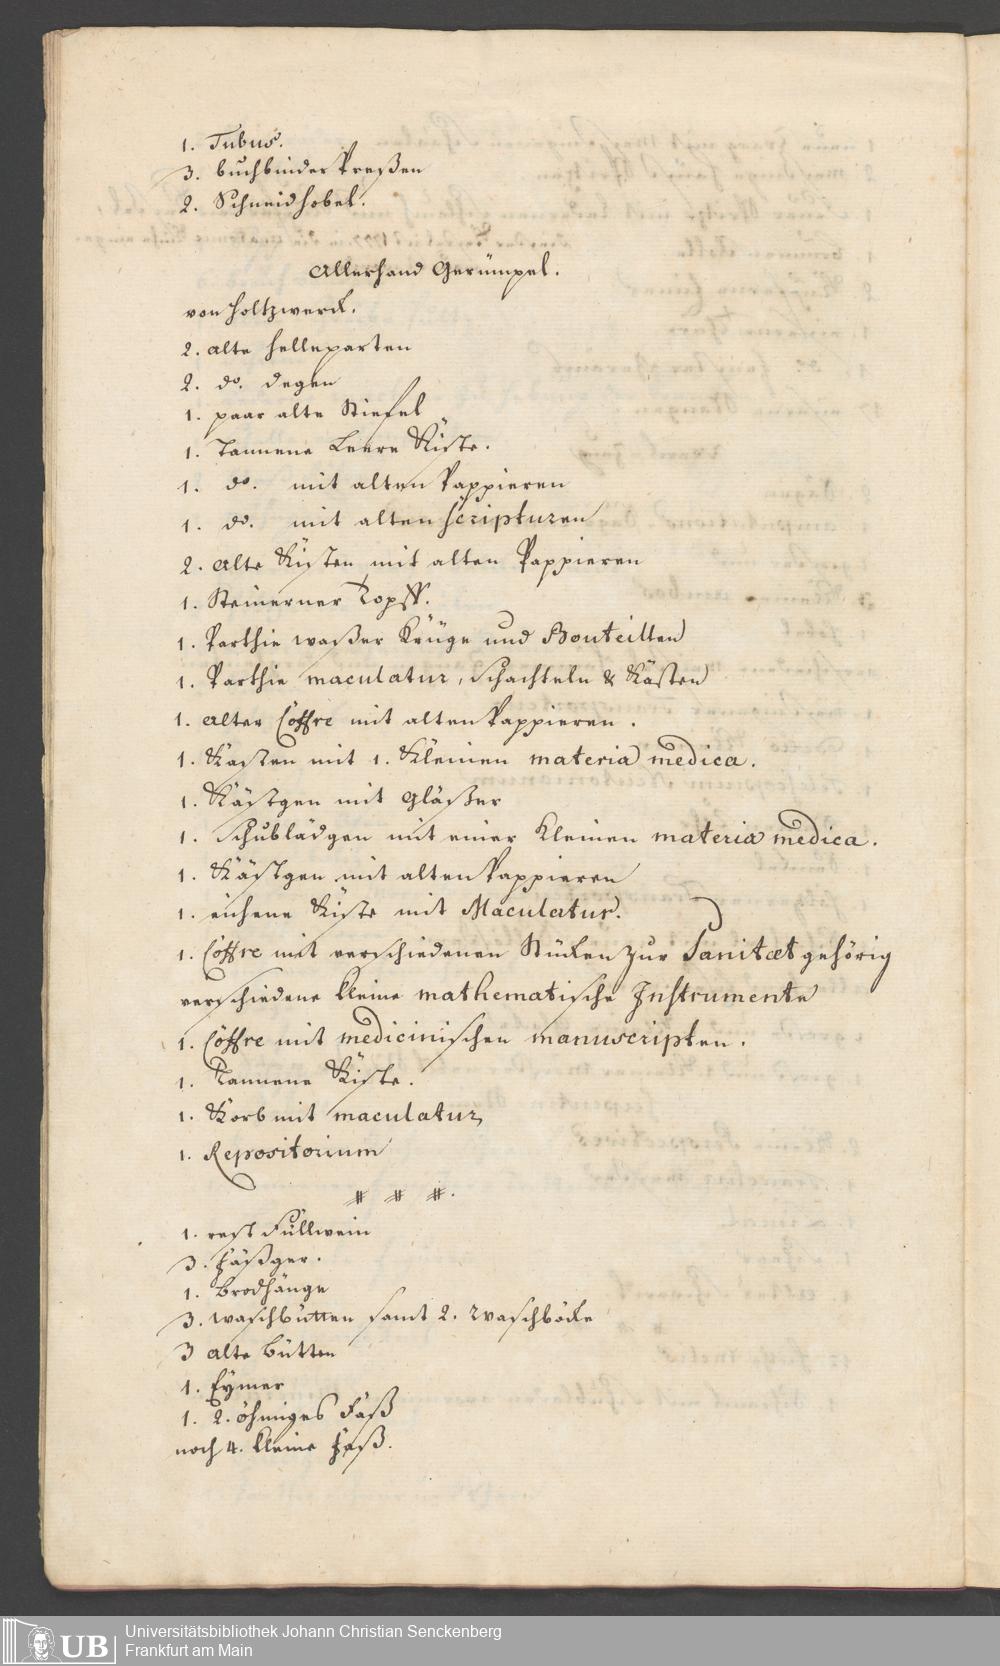 1. Tubus.
3. buchbinder Preßen
2. Schneidhobel.
Allerhand Gerümpel.
von Holtzwerck.
2. alte Helleparten
2. do. degen
1. paar alte Stiefel
1. Tannene Leere Kiste.
1. do. mit alten Pappieren
1. do. mit alten scripturen
2. alte Kisten mit alten Pappieren
1. Steinerner Topff.
1. Parthie waßer Krüge und Bouteillen
1. Parthie maculatur, Schachteln & Kästen
1. alter Coffre mit alten Pappieren.
1. Kasten mit 1. Kleinen materia medica.
1. Kästgen mit Gläßer
1. Schublädgen mit einer Kleinen materia medica.
1. Kästgen mit alten Pappieren
1. eichene Kiste mit Maculatur.
1. Coffre mit verschiedenen Stücken zur Sanitæt gehörig
verschiedene kleine mathematische Instrumente
1. Coffre mit medicinischen manuscripten.
1. Tannene Kiste.
1. Korb mit maculatur,
1. Repositorium
# # #.
1. rest Füllwein
3. Fäßger.
1. Brodhänge
3. Waschbütten samt 2. Waschböcke
3 alte Bütten
1. Eymer
1. 2. öhmiges Faß
noch 4. kleine Faß.
Universitätsbibliothek Johann Christian Senckenberg
Frankfurt am Main
UB